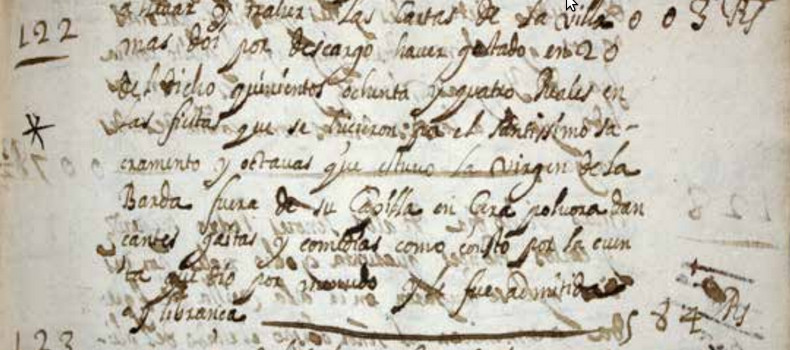 a llevar y traher las Cartas de la villa 003 Rs
122 mas doi por descargo haver gastado en 20
del dicho quinientos ochenta y quatro Reales en
las fiestas que se hicieron pa el santissimo sa-
cramento y octavas que estuvo la Virgen de la
Barda fuera de su Capilla en Cera polvora dan
cantes gaitas y comedias como consto por la cuen
ta que dio por menudo y le fue admitida
a libranca 584 Rs
123